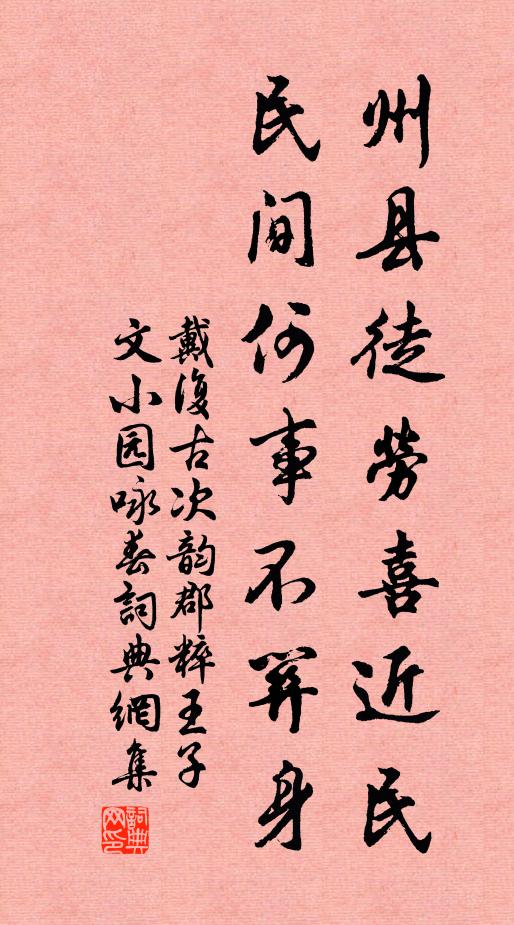 州县徒勞喜近民
民间何事不关身
戴復古次韵郡粹王子
文小园咏春詞典網集
詞典网印